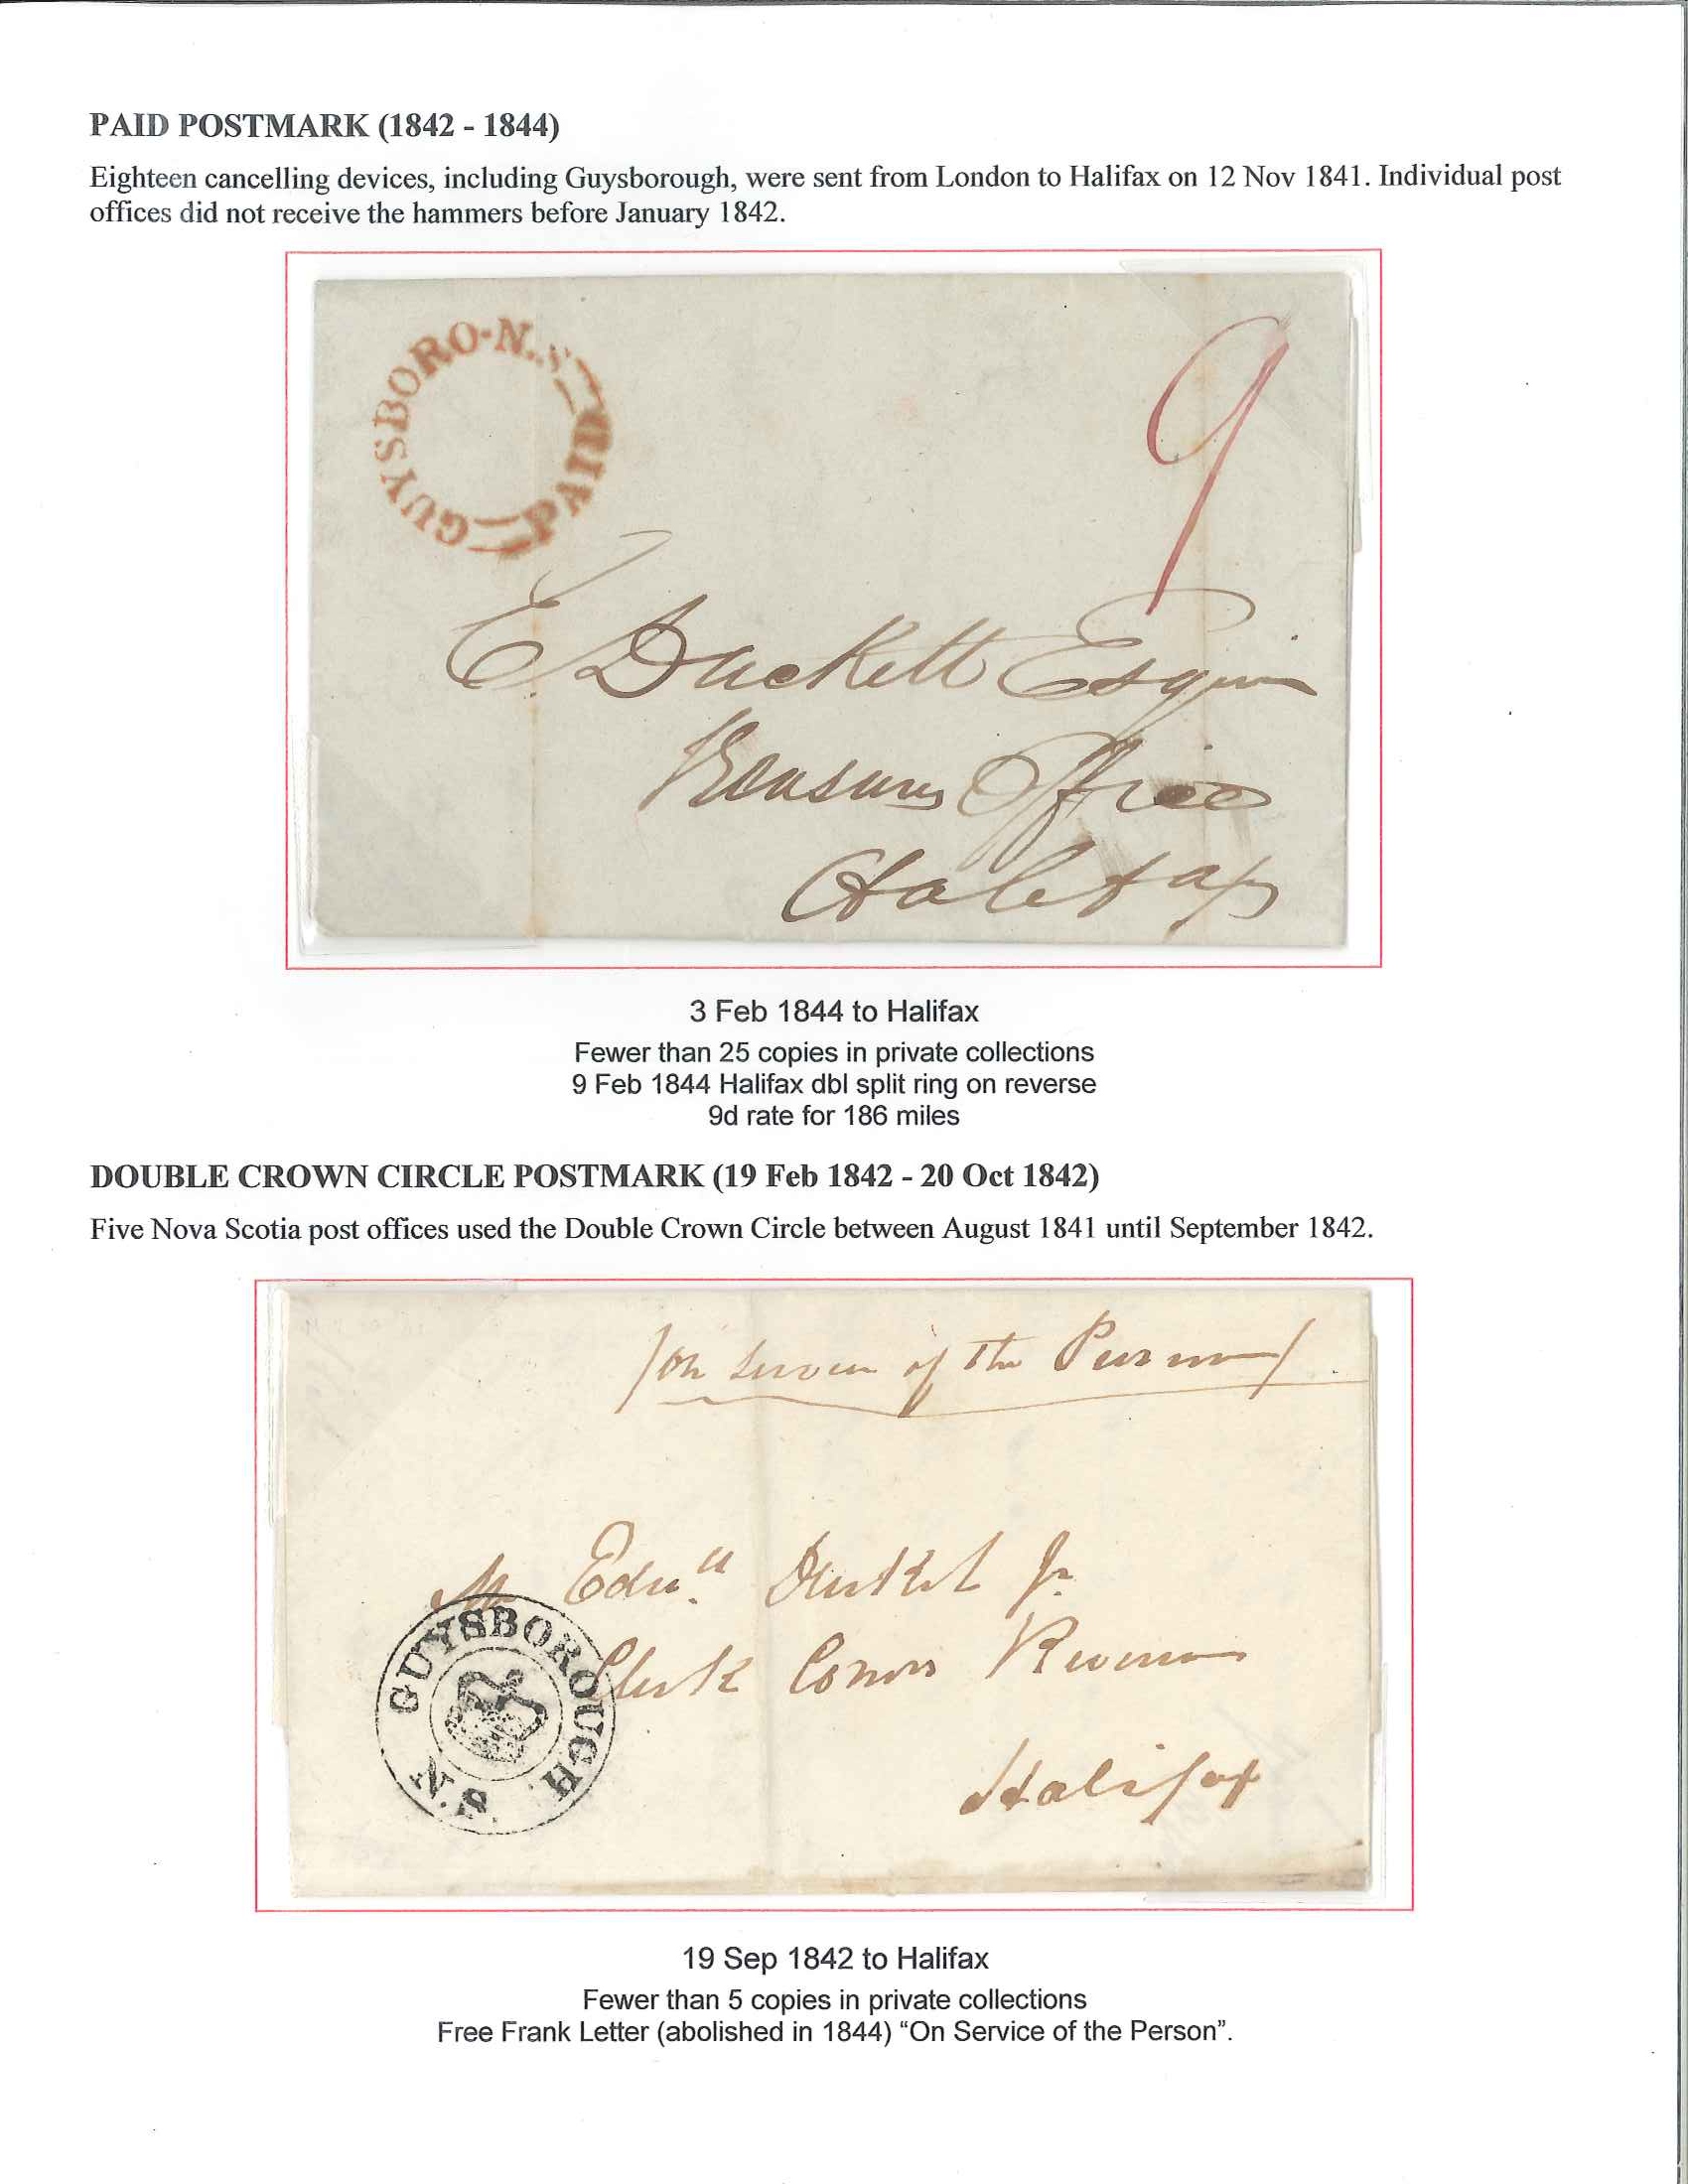 PAID POSTMARK (1842 - 1844)
Eighteen cancelling devices, including Guysborough, were sent from London to Halifax on 12 Nov 1841. Individual post
offices did not receive the hammers before January 1842.
GUYSBORO-N.S
PAID
9
E. Duckett Esqur
Treasury Office
Halifax
3 Feb 1844 to Halifax
Fewer than 25 copies in private collections
9 Feb 1844 Halifax dbl split ring on reverse
9d rate for 186 miles
DOUBLE CROWN CIRCLE POSTMARK (19 Feb 1842 - 20 Oct 1842)
Five Nova Scotia post offices used the Double Crown Circle between August 1841 until September 1842.
On Service of the
Edwd Duckett Jr.
Clerk Comrs Revenue
Halifax
GUYSBOROUGH
N.S.
19 Sep 1842 to Halifax
Fewer than 5 copies in private collections
Free Frank Letter (abolished in 1844) “On Service of the Person”.